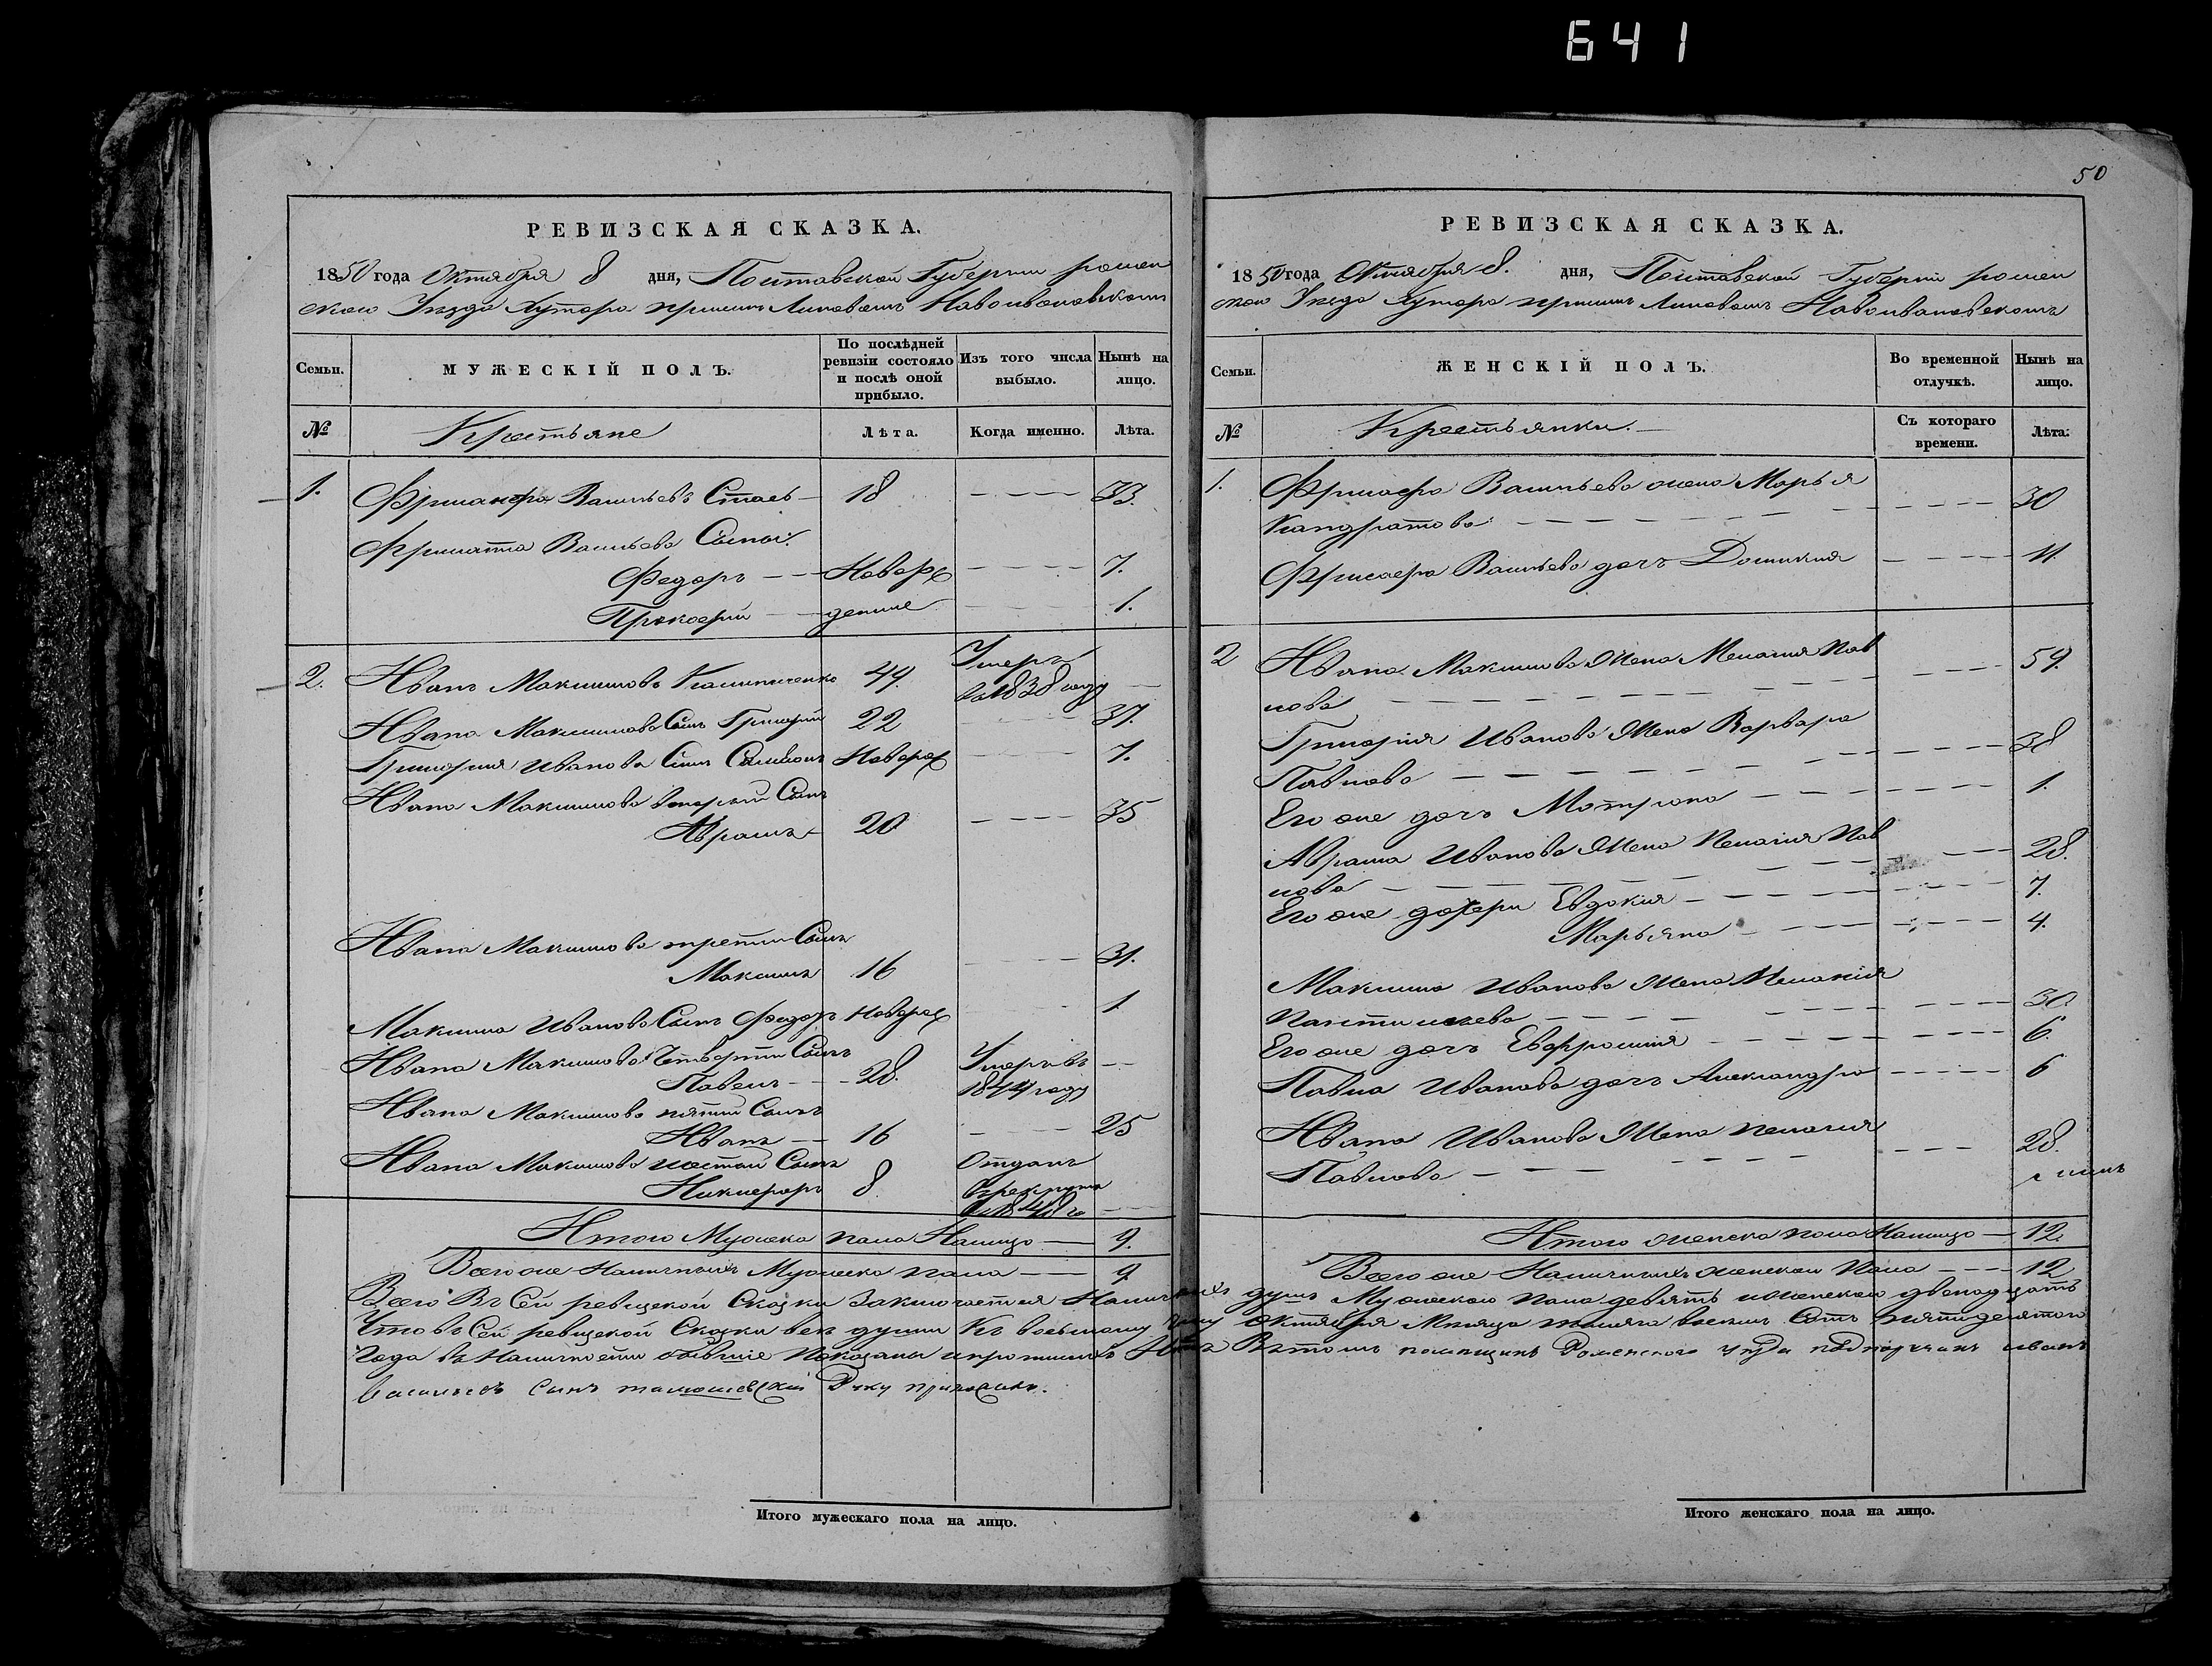 641
50
РЕВИЗСКАЯ СКАЗКА.
1850 года Октября 8 дня, Полтавской Губернии ромен
ского Уезда Хутора
Семьи.
МУЖЕСКІЙ ПОЛЪ.
По послѣдней ревизіи состояло и послѣ оной прибыло.
Изъ того числа выбыло.
Нынѣ на лицо.
№
Крестьяне
Лѣта.
Когда именно.
Лѣта.
1. Васильевъ 18 33.
Васильева Сыны:
Федоръ Новоро 7.
Прокофий ждение 1.
2. Иванъ Максимовъ 44. Умеръ
въ 1838 году
Ивана Максимова Сынъ Григорий 22 37.
Григория Иванова Сынъ Новорож 7.
Ивана Максимова вторый Сынъ
Абрамъ 20 35
Ивана Максимова третий Сынъ
Максимъ 16 31.
Максима Иванова Сынъ Федоръ Новорож 1.
Ивана Максимова Четвертий Сынъ Умеръ въ
Павелъ 28. 1844 году
Ивана Максимова пятий Сынъ
Иванъ 16 25
Ивана Максимова шестой Сынъ Отданъ
Никифоръ 8. в рекруты
Итого Мужска пола Налицо 9.
Всего же Наличныхъ Мужеска пола 9.
Итого мужескаго пола на лицо.
РЕВИЗСКАЯ СКАЗКА.
1850 года Октября 8. дня, Полтавской Губерніи ромен
ского Уезда Хутора
Семьи.
ЖЕНСКІЙ ПОЛЪ.
Во временной отлучкѣ.
Нынѣ на лицо.
№
Крестьянки.
Съ котораго времени.
Лѣта.
1. Васильева жена Марья
Кандратова 30
Васильева дочъ Домникия 11.
2 Ивана Максимова Жена Мелания Пав
лова 59.
Григорія Иванова Жена Варвара
Павлова 38
Его же дочъ Матрона 1.
Абрама Иванова Жена Пелагия Пав
лова 28.
Его же дочери Евдокия 7.
Марьяна 4.
Максима Иванова Жена Меланія
30.
Его же дочъ Евфросиния 6.
Павла Иванова дочъ Александра 6
Ивана Иванова Жена Пелагия
Павлова 28.
Итого женска пола Налицо 12.
Всего же Наличныхъ женска Пола 12
Всего Въ Сей ревизской Сказки Заключается Наличныхъ душъ Мужескаго пола девять и женскаго двенадцать
Что въ Сей ревизской Сказки все души Къ восьмому Октября Месяца тысяча восемъ Сотъ пятидесятого
Года въ Наличности бывшие Показаны Въ томъ помещикъ Роменского уезда подпоручикъ иванъ
васильевъ сынъ Руку приложилъ.
Итого женскаго пола на лицо.